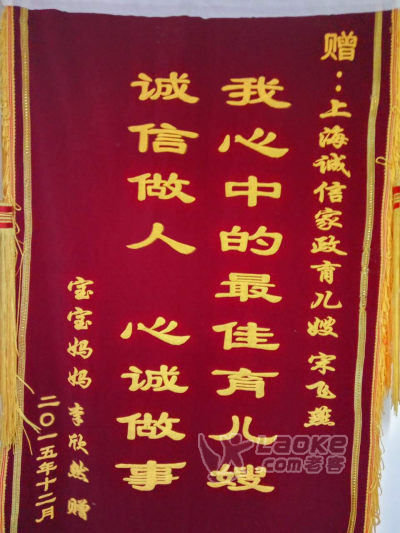 赠：上海诚信家政育儿嫂 宋飞燕
我心中的最佳育儿嫂
诚信做人 心诚做事
宝宝妈妈 李欣然 赠
二〇一五年十二月
LAOKE
.com老客